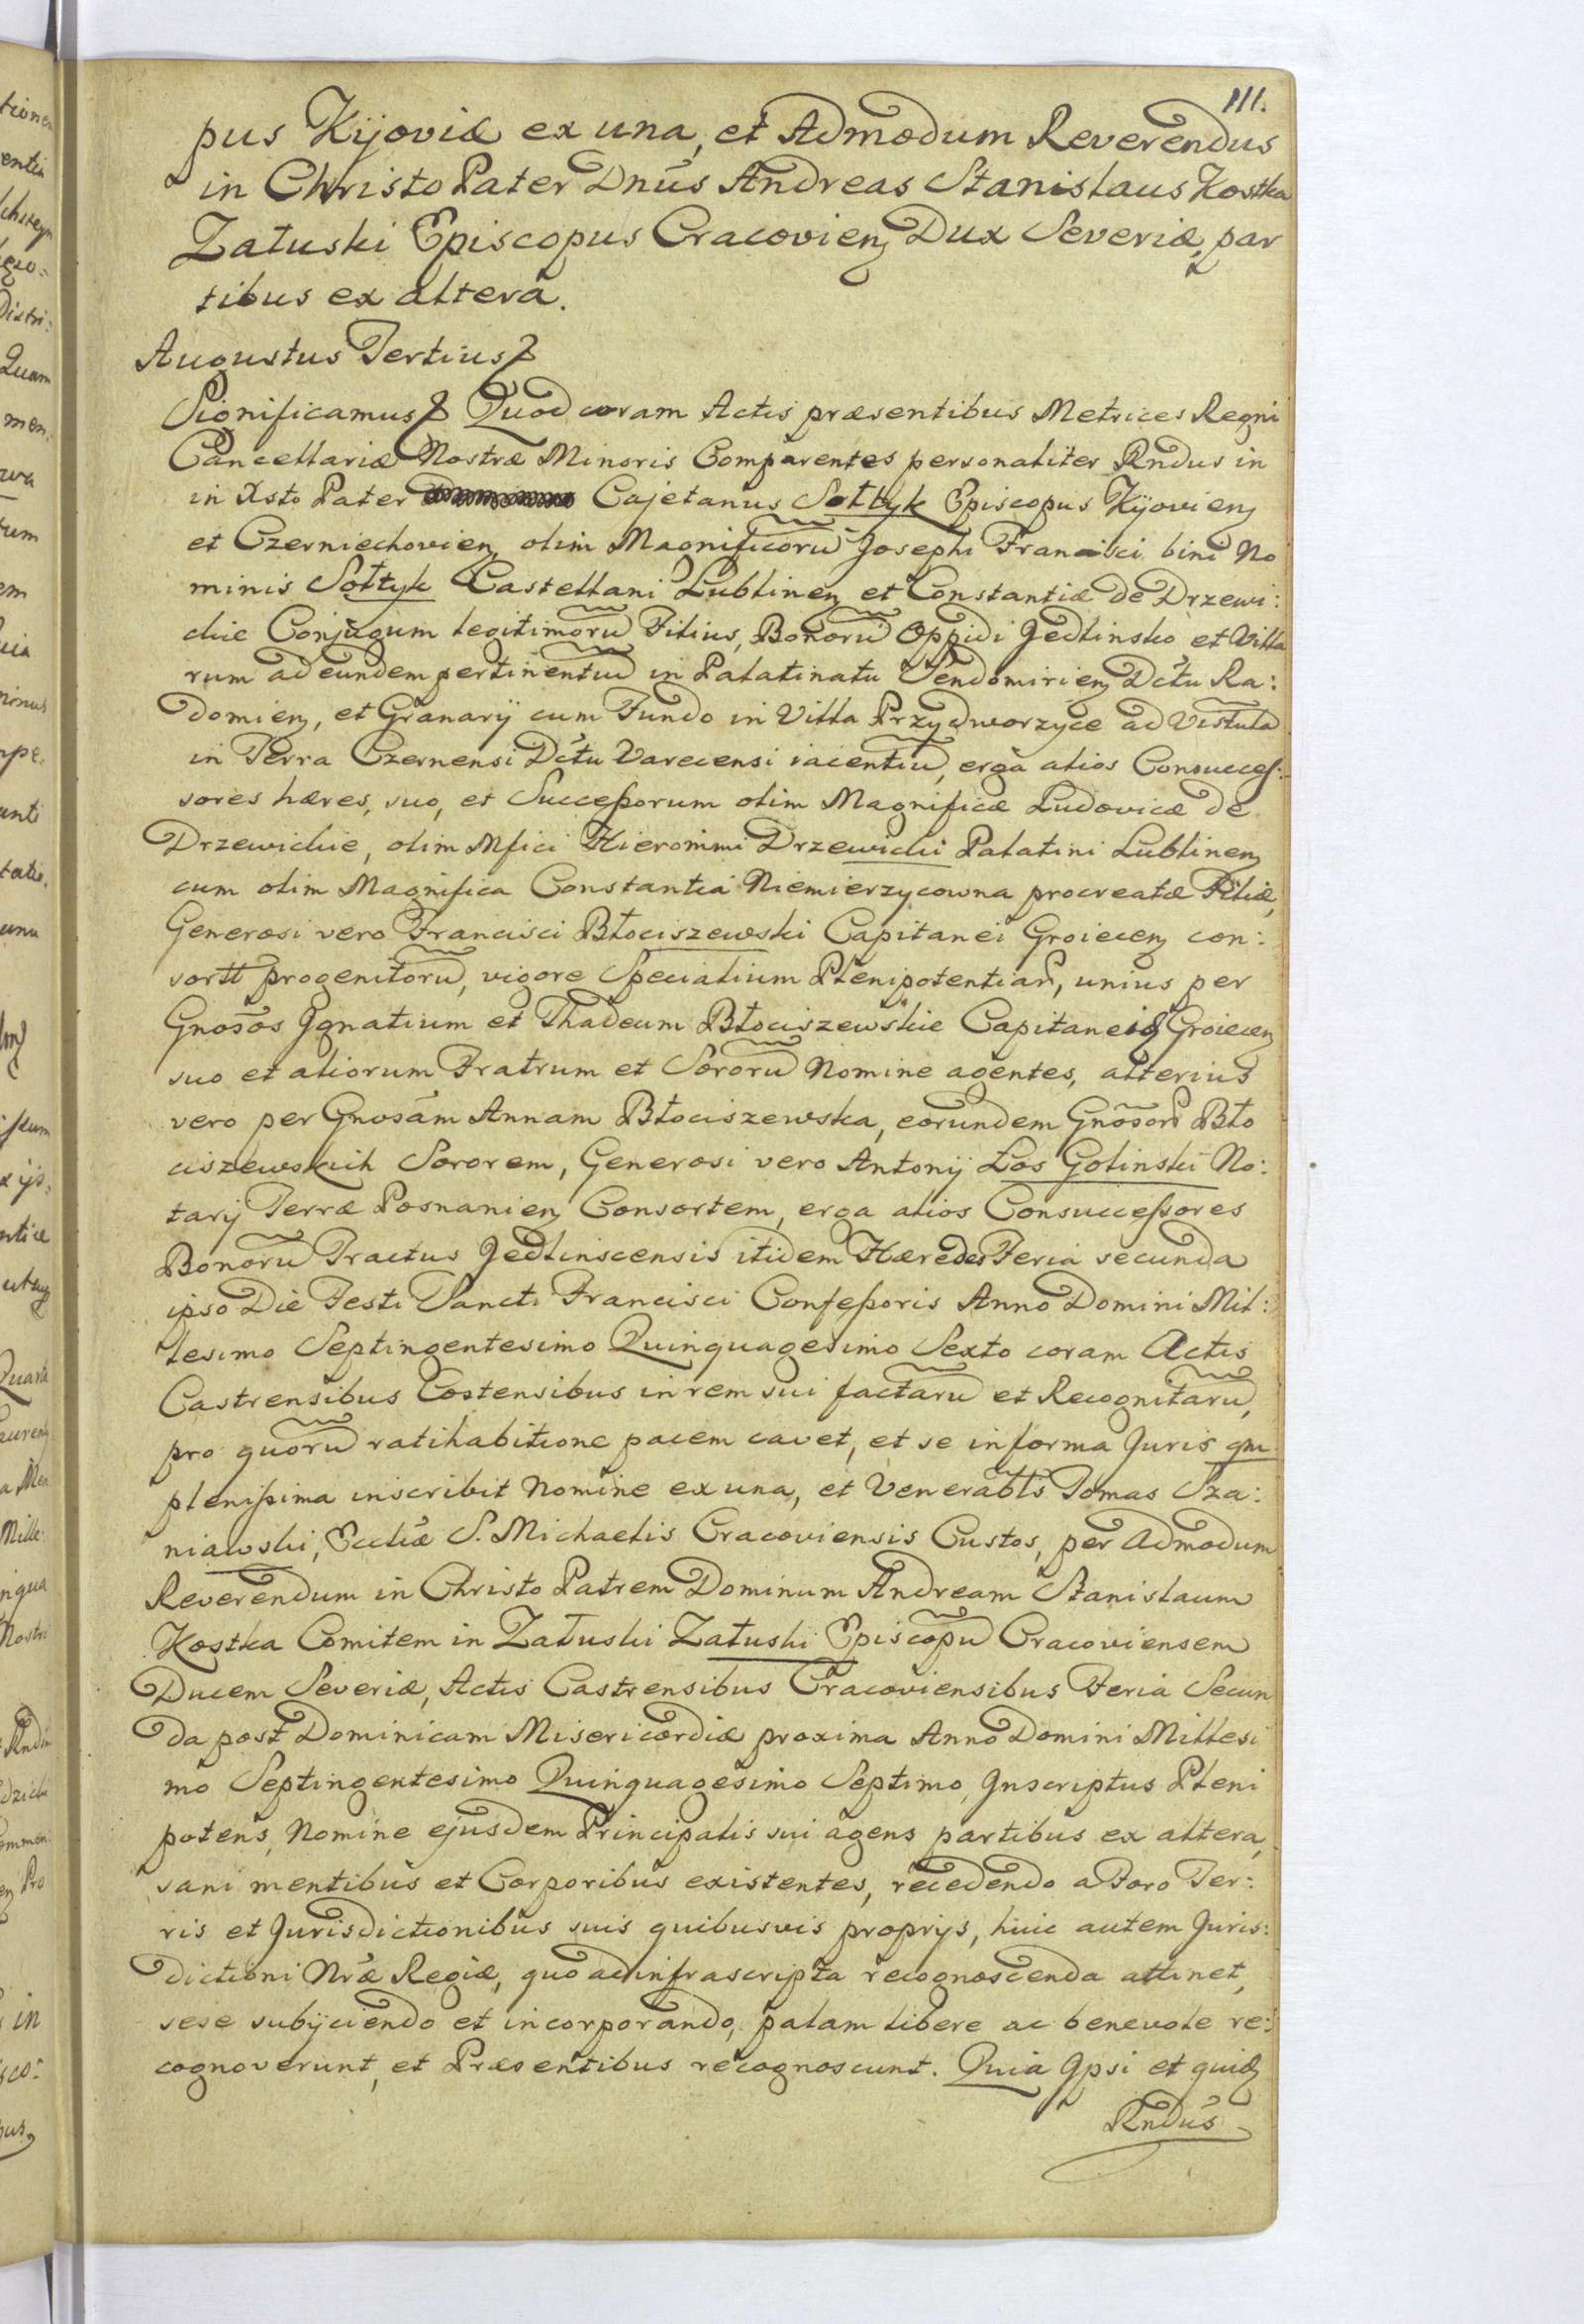 111.
pus Kijoviæ ex una, et Admodum Reverendus
in Christo Pater Dnus Andreas Stanislaus Kostka
Załuski Episcopus Cracovien Dux Severiæ, par
tibus ex altera.
Augustus Tertius
Significamus Quod coram Actis præsentibus Metrices Regni
Cancellariæ Nostræ Minoris Comparentes personaliter Rndus in
in Xsto Pater Cajetanus Sołtyk Episcopus Kijovien
et Czerniechovien olim Magnificorū Josephi Francisci bini No
minis Sołtyk Castellani Lublinen et Constantiæ de Drzewi:
ckie Conjugum legitimorū Filius, Bonorū Oppidi Jedlinsko et Villa
rum ad eundem pertinentiū in Palatinatu Sendomirien Dctu Ra:
domien, et Granarij cum Fundo in Villa Przydworzyce ad Vistula
in Terra Czernensi Dctu Varecensi iacentiū, erga alios Consucces:
sores hæres, suo, et Successorum olim Magnificæ Ludovicæ de
Drzewickie, olim Mfici Hieronimi Drzewicki Palatini Lublinen
cum olim Magnifica Constantia Niemierzycowna procreatæ Filiæ,
Generosi vero Francisci Błociszewski Capitanei Groiecen con:
sortt progenitorū, vigore Specialium Plenipotentiar, unius per
Gnosos Ignatium et Thadeum Błociszewskie Capitaneid Groiecen
suo et aliorum Fratrum et Sororū Nomine agentes, alterius
vero per Gnosam Annam Błociszewska, eorundem Gnosor Bło
ciszewskich Sororem, Generosi vero Antonij Łos Golinski No:
tarij Terræ Posnanien Consortem, erga alios Consuccessores
Bonorū Tractus Jedlinscensis itidem Hæredes Feria secunda
ipso Die Festi Sancti Francisci Confessoris Anno Domini Mil:
lesimo Septingentesimo Quinquagesimo Sexto coram Actis
Castrensibus Costensibus in rem sui factarū et Recognitarū,
pro quorū ratihabitione pacem cavet, et se in forma Juris qm
plenissima inscribit Nomine ex una, et Venerabls Tomas Sza:
niawski, Eccliæ S. Michaelis Cracoviensis Custos, per Admodum
Reverendum in Christo Patrem Dominum Andream Stanislaum
Kostka Comitem in Załuski Załuski Episcopū Cracoviensem
Ducem Severiæ, Actis Castrensibus Cracoviensibus Feria Secun
da post Dominicam Misericordiæ proxima Anno Domini Millesi
mo Septingentesimo Quinquagesimo Septimo, Inscriptus Pleni
potens, Nomine ejusdem Principalis sui agens partibus ex altera,
sani mentibus et Corporibus existentes, recedendo a Foro Ter:
ris et Jurisdictionibus suis quibusvis proprijs, huic autem Juris:
dictioni Nræ Regiæ, quo ad infrascripta recognoscenda attinet,
sese subijciendo et incorporando, palam libere ac benevole re:
cognoverunt, et Præsentibus recognoscunt. Quia Ipsi et quid
Rndus